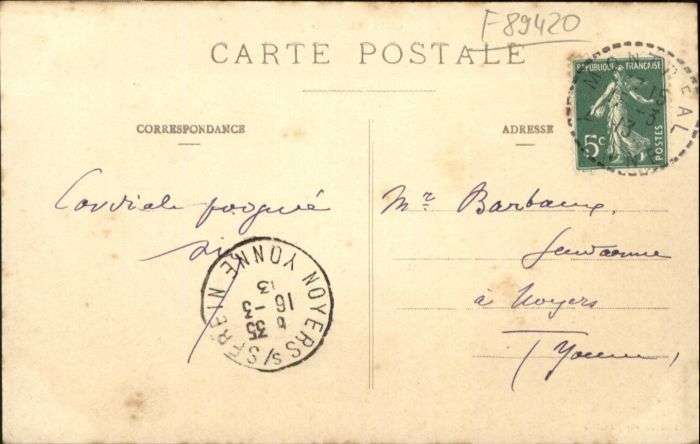 F-89420
CARTE POSTALE
CORRESPONDANCE
ADRESSE
REPUBLIQUE FRANÇAISE
5c
POSTES
Cordiale poignée
Mr Barbaux,
Gendarme
à Noyers
(Yonne)
NOYERS S/SEREIN YONNE
16 -3
13